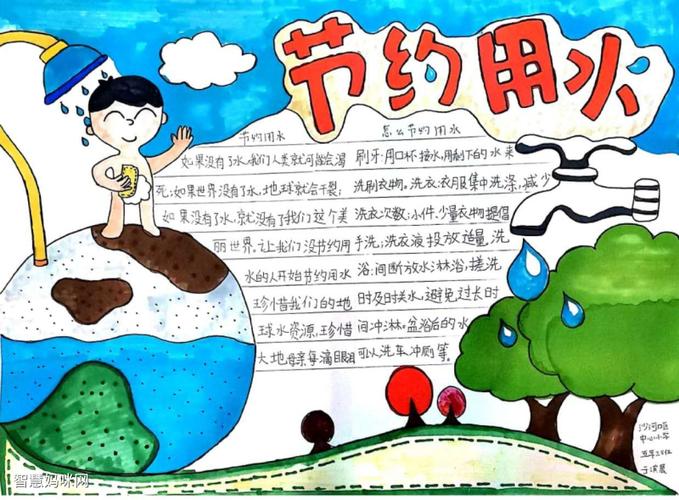 节约用水
节约用水
如果没有了水,我们人类就可能会渴
死;如果世界没有了水,地球就会干裂;
如果没有了水,就没有了我们这个美
丽世界。让我们没节约用
水的人开始节约用水
珍惜我们的地
球水资源,珍惜
大地母亲每滴眼泪
怎么节约用水
刷牙:用口杯接水,用剩下的水来
洗刷衣物。洗衣:衣服集中洗涤,减少
洗衣次数;小件、少量衣物提倡
手洗;洗衣液投放适量。洗
浴:间断放水淋浴,搓洗
时及时关水,避免过长时
间冲淋。盆浴后的水
可以洗车冲厕等。
沙河口区
中心小学
智慧妈咪网